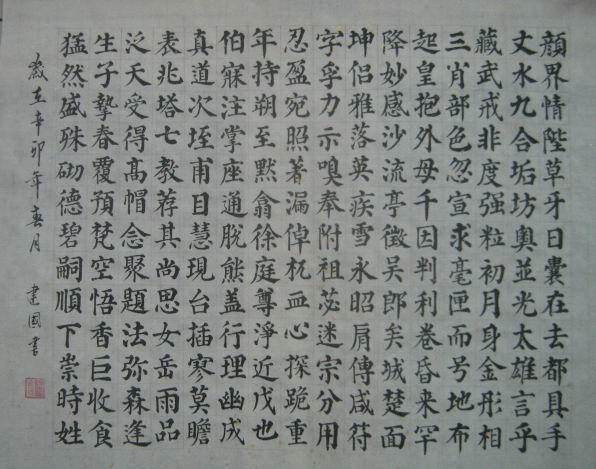 顏界情陛草牙日囊在去都具手
丈水九合垢坊奥並光太雄言乎
藏武戒非度强粒初月身金形相
三肖部色忽宣求毫匣而号地布
起皇抱外母千因判利卷昏来罕
降妙感沙流亭徵吴郎矣城楚面
坤侣雅落英疾雪永昭肩傳咸符
字孚力示嗅奉附祖苾迷宗分用
忍盈宛照著漏倬杌血心探跪重
年持朔至默翁徐庭尊淨近戊也
伯寐注掌座通脱熊盖行理幽成
真道次垤甫目慧現台插寥莫瞻
表兆塔七教荐其尚思女岳雨品
泛天受得髙帽念聚題法弥森逢
生子摯春覆預梵空悟香巨收食
猛然盛殊砌德碧嗣順下崇時姓
歲在辛卯年春月 建國書